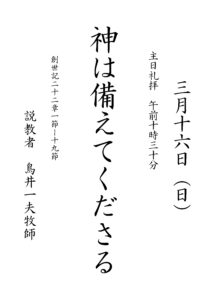 三月十六日（日）
主日礼拝　午前十時三十分
神は備えてくださる
創世記二十二章一節〜十九節
説教者　鳥井一夫牧師